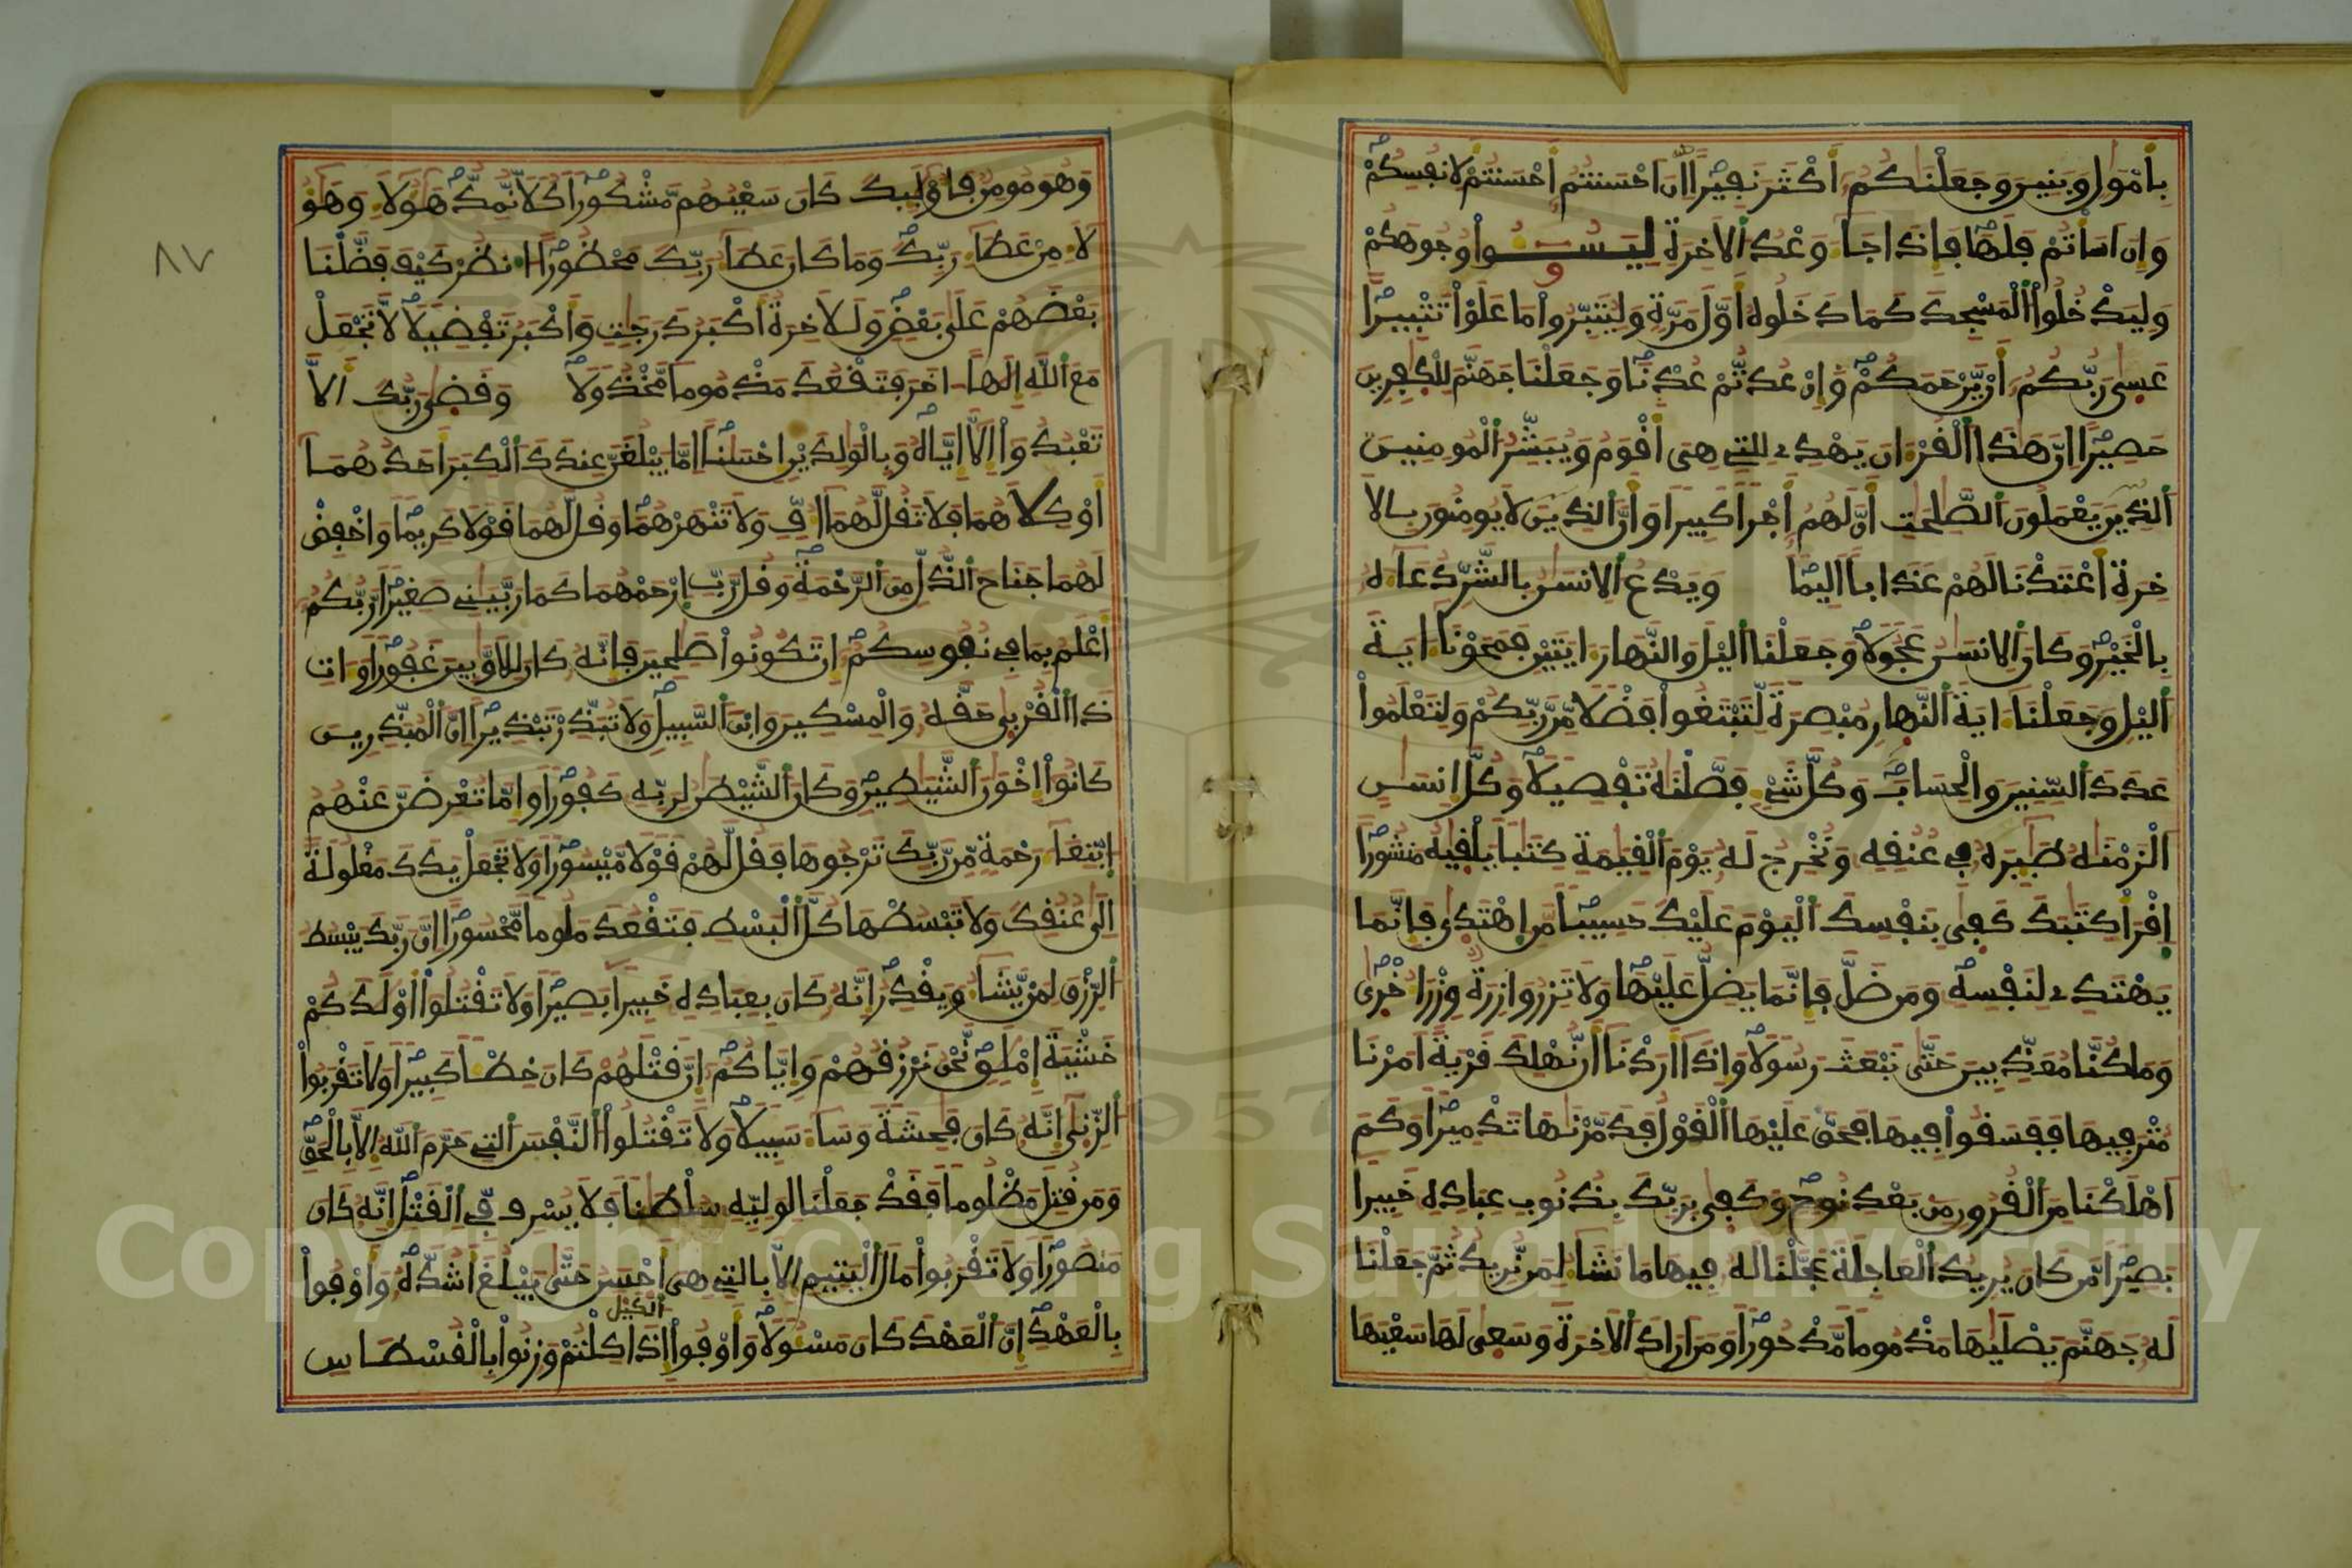 بأمول وبنين وجعلنكم أكثر نفيرا ان احسنتم احسنتم لانفسكم
وان اسأتم فلها فاذا جا وعد الاخرة ليسـوا وجوهكم
وليدخلوا المسجد كما دخلوه أول مرة وليتبروا ما علوا تتبيرا
عسى ربكم أن يرحمكم وإن عدتم عدنا وجعلنا جهنم للكفرين
حصيرا ان هذا القران يهدى للتى هى أقوم ويبشر المومنين
الذين يعملون الصلحت ان لهم أجرا كبيرا وأن الذين لا يومنون بالا
خرة أعتدنا لهم عذابا اليما ويدع الانسن بالشر دعاه
بالخير وكان الانسن عجولا وجعلنا اليل والنهار ايتين فمحونا اية
اليل وجعلنا اية النهار مبصرة لتبتغوا فضلا من ربكم ولتعلموا
عدد السنين والحساب وكل شى فصلنه تفصيلا وكل انسن
الزمنه طيره فى عنقه ونخرج له يوم القيمة كتبا يلقيه منشورا
اقرأ كتبك كفى بنفسك اليوم عليك حسيبا من اهتدى فانما
يهتدى لنفسه ومن ضل فانما يضل عليها ولا تزر وازرة وزر اخرى
وما كنا معذبين حتى نبعث رسولا واذا اردنا ان نهلك قرية امرنا
مترفيها ففسقوا فيها فحق عليها القول فدمرنها تدميرا وكم
اهلكنا من القرون من بعد نوح وكفى بربك بذنوب عباده خبيرا
بصيرا من كان يريد العاجلة عجلنا له فيها ما نشا لمن نريد ثم جعلنا
له جهنم يصليها مذموما مدحورا ومن اراد الاخرة وسعى لها سعيها
وهو مومن فاوليك كان سعيهم مشكورا كلا نمد هؤلا وهؤ
لا من عطا ربك وما كان عطا ربك محظورا انظر كيف فضلنا
بعضهم على بعض وللاخرة أكبر درجت وأكبر تفضيلا لا تجعل
مع الله الها اخر فتقعد مذموما مخذولا وقضى ربك الا
تعبدوا الا اياه وبالولدين احسنا اما يبلغن عندك الكبر احدهما
أو كلاهما فلا تقل لهما اف ولا تنهرهما وقل لهما قولا كريما واخفض
لهما جناح الذل من الرحمة وقل رب ارحمهما كما ربينى صغيرا ربكم
أعلم بما فى نفوسكم ان تكونوا صلحين فانه كان للاوبين غفورا وات
ذا القربى حقه والمسكين وابن السبيل ولا تبذر تبذيرا ان المبذرين
كانوا اخون الشيطين وكان الشيطن لربه كفورا واما تعرضن عنهم
ابتغا رحمة من ربك ترجوها فقل لهم قولا ميسورا ولا تجعل يدك مغلولة
الى عنقك ولا تبسطها كل البسط فتقعد ملوما محسورا ان ربك يبسط
الرزق لمن يشا ويقدر انه كان بعباده خبيرا بصيرا ولا تقتلوا أولدكم
خشية إملق نحن نرزقهم واياكم ان قتلهم كان خطـا كبيرا ولا تقربوا
الزنى انه كان فحشة وسا سبيلا ولا تقتلوا النفس التى حرم الله الا بالحق
ومن قتل مظلوما فقد جعلنا لوليه سلطنا فلا يسرف فى القتل انه كان
منصورا ولا تقربوا مال اليتيم الا بالتى هى أحسن حتى يبلغ اشده وأوفوا
بالعهد ان العهد كان مسـولا وأوفوا الكيل اذا كلتم وزنوا بالقسطاس
٨٧
Copyright © King Saud University
1957